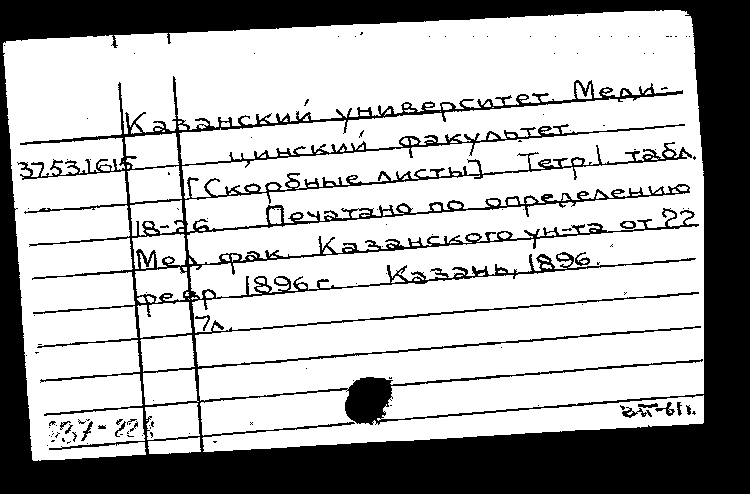 Казанский университет. Меди-
37.53.1.615 цинский факультет.
[Скорбные листы] Тетр. 1. табл.
18-26. Печатано по определению
Мед. фак. Казанского ун-та от 22
февр. 1896 г. Казань, 1896.
7 л.